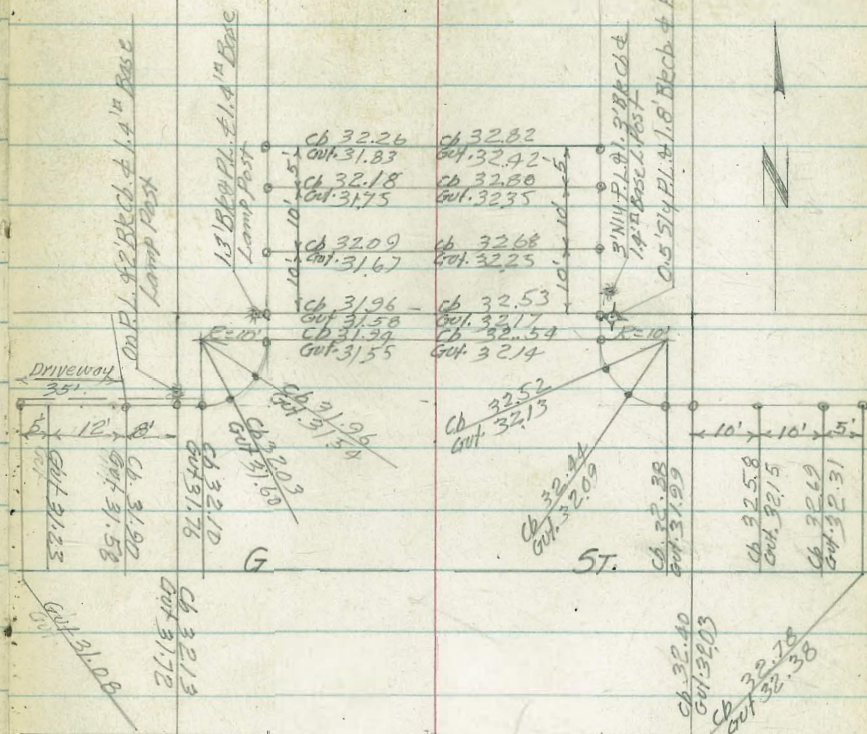 On P.L. & 2' Bk Cb. & 1.4' in Base
Lamp Post
13' Bk & P.L. & 1.4' in Base
Lamp Post
3' N'ly P.L. & 1.3' Bk Cb &
1.4' in Base L. Post
0.5' S'ly P.L. & 1.8' Bk Cb &
Cb 32.26
Gut. 31.83
Cb 32.18
Gut. 31.75
Cb 32.09
Gut. 31.67
Cb 31.96
Gut 31.58
Cb 31.94
Gut. 31.55
5'
10'
10'
Cb 32.82
Gut. 32.42
Cb 32.80
Gut. 32.35
Cb 32.68
Gut. 32.25
Cb 32.53
Gut. 32.17
Cb 32.54
Gut. 32.14
5'
10'
10'
N
R=10'
R=10'
Driveway
35'
5'
12'
8'
Cb 31.96
Gut. 31.54
Cb 32.03
Gut 31.60
Cb 32.52
Gut. 32.13
Cb 32.44
Gut. 32.09
10'
10'
5'
Gut 31.23
Cb 31.90
Gut 31.58
Cb 32.10
Gut 31.76
Cb 32.38
Gut 31.99
Cb 32.58
Gut. 32.15
Cb 32.69
Gut 32.31
G ST.
Gut 31.08
Cb 32.13
Gut 31.72
Cb 32.40
Gut 32.03
Cb 32.78
Gut 32.38